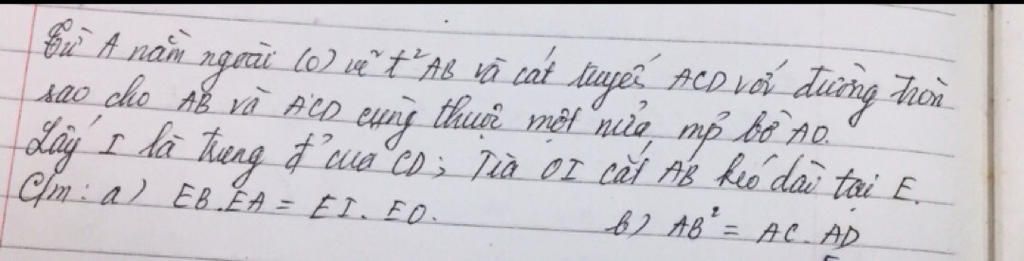 Từ A nằm ngoài (O) vẽ t² AB và cát tuyến ACD với đường tròn
sao cho AB và ACD cùng thuộc một nửa mp bờ AO.
Lấy I là trung đ² của CD; Tia OI cắt AB kéo dài tại E.
C/m: a) EB.EA = EI.EO. b) AB² = AC.AD